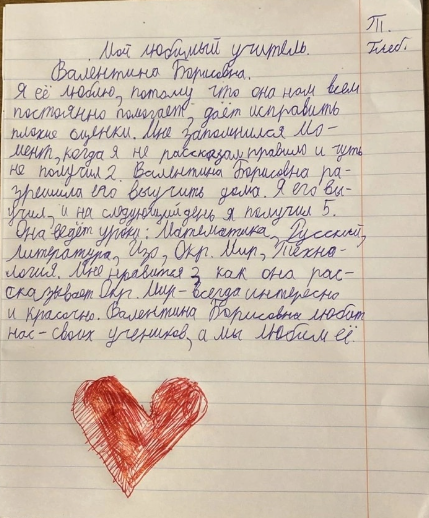 П.
Глеб.
Мой любимый учитель.
Валентина Борисовна.
Я её люблю, потому что она нам всем
постоянно помогает, даёт исправить
плохие оценки. Мне запомнился мо-
мент, когда я не рассказал правило и чуть
не получил 2. Валентина Борисовна ра-
зрешила его выучить дома. Я его вы-
учил, и на следующий день я получил 5.
Она ведёт уроки: Математика, Русский,
Литература, Изо, Окр. Мир, Техно-
логия. Мне нравится, как она рас-
сказывает Окр. Мир - всегда интересно
и красочно. Валентина Борисовна любит
нас - своих учеников, а мы любим её.